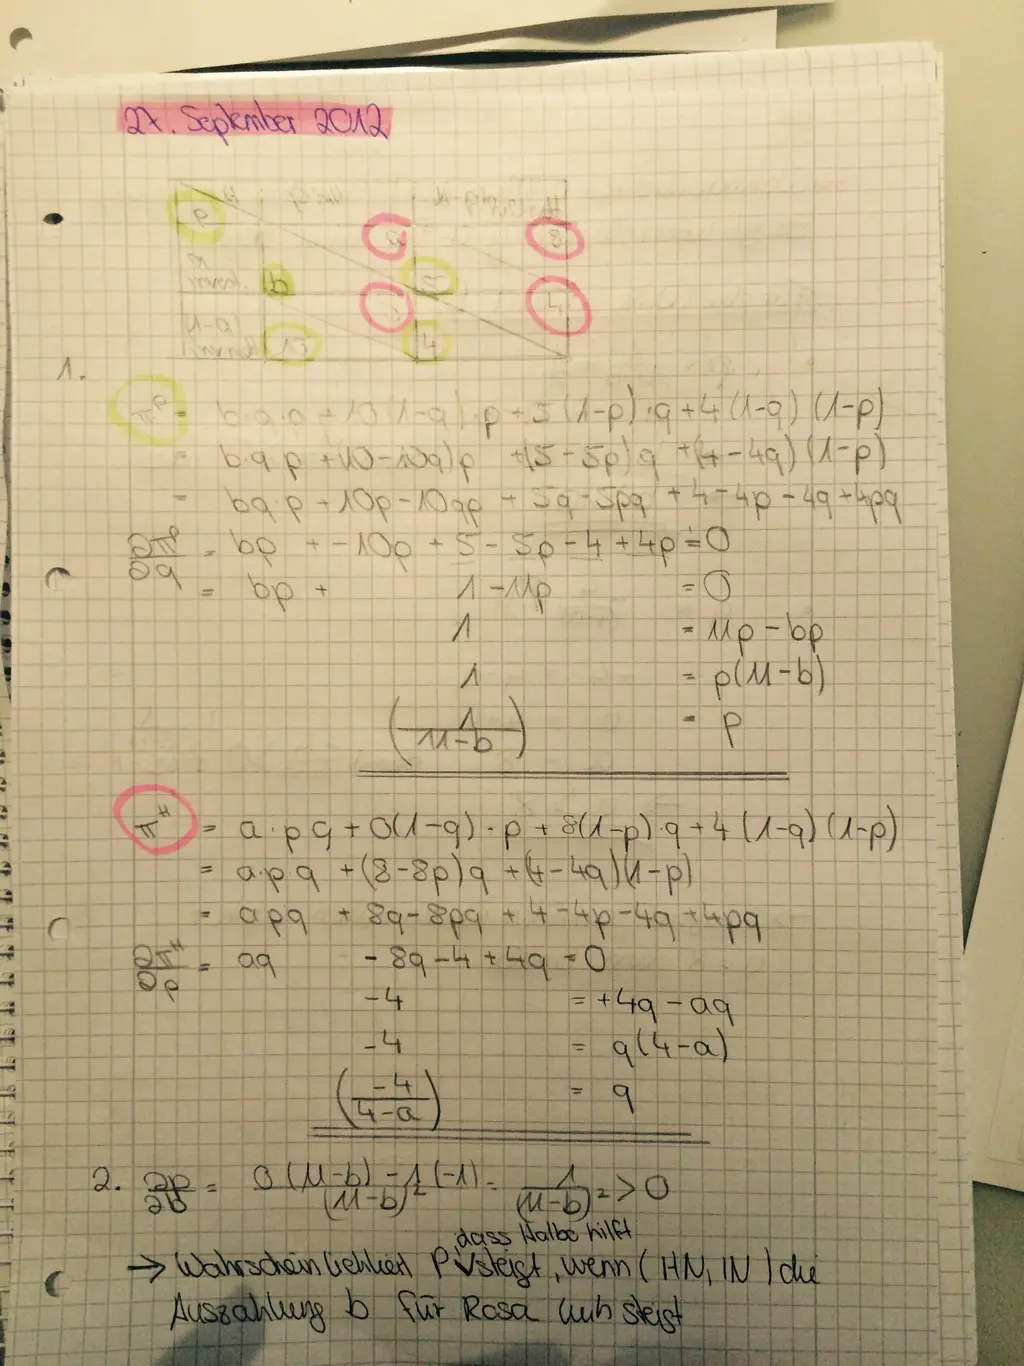 27. September 2012
1.
π = b·q·p + 10(1-q)·p + 5(1-p)·q + 4(1-q)(1-p)
= b·q·p + (10-10q)p + (5-5p)q + (4-4q)(1-p)
= bq·p + 10p - 10qp + 5q - 5pq + 4 - 4p - 4q + 4pq
∂π/∂q = bp + -10p + 5 - 5p - 4 + 4p = 0
= bp + 1 - 11p = 0
1 = 11p - bp
1 = p(11-b)
(1/(11-b)) = p
π^H = a·pq + 0(1-q)·p + 8(1-p)·q + 4(1-q)(1-p)
= a·p·q + (8-8p)q + (4-4q)(1-p)
= apq + 8q - 8pq + 4 - 4p - 4q + 4pq
∂π^H/∂p = aq - 8q - 4 + 4q = 0
-4 = +4q - aq
-4 = q(4-a)
(-4/(4-a)) = q
2. ∂p/∂b = 0(11-b) - 1(-1)/(11-b)² = 1/(11-b)² = > 0
dass Halbe hilft
→ Wahrscheinlichkeit P steigt, wenn (HN, IN) die
Auszahlung b für Rosa Luth steigt